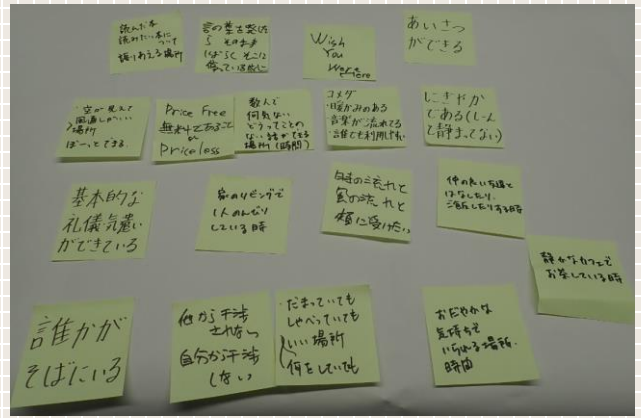 読んだ本
読みたい本に
ついて
語りあえる場所
Wish
You
Were
Here
あいさつ
ができる
・空が見えて
風通しがいい
場所
ぼーっとできる
Price Free
無料であること
が
Priceless
数人で
何気ない
どうってことの
ない話ができる
場所(時間)
コメダ
・暖かみのある
・音楽が流れてる
・誰でも利用しやすい
にぎやか
である(しーん
と静まってない)
基本的な
礼儀気遣い
ができている
家のリビングで
1人のんびり
している時
時の流れと
風の流れを
頬に受けたい
仲の良い友達と
はなしたり、
する時
静かなカフェで
お茶している時
誰かが
そばにいる
他から干渉
されない
自分から干渉
しない
・だまっていても
しゃべっていても
いい場所
何をしていても
おだやかな
気持ちで
いられる場所・
時間